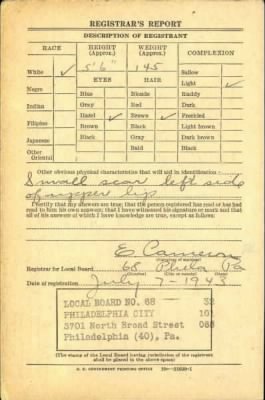 REGISTRAR'S REPORT
DESCRIPTION OF REGISTRANT
RACE HEIGHT (Approx.) WEIGHT (Approx.) COMPLEXION
White ✓ 5'6" 145 Sallow
EYES HAIR Light ✓
Negro Blue Blonde Ruddy
Indian Gray Red Dark
Filipino Hazel ✓ Brown ✓ Freckled
Japanese Brown Black Light brown
Other Oriental Black Gray Dark brown
Bald Black
Other obvious physical characteristics that will aid in identification
Small scar left side
of upper lip
I certify that my answers are true; that the person registered has read or has had
read to him his own answers; that I have witnessed his signature or mark and that
all of his answers of which I have knowledge are true, except as follows:
E Cameron
Registrar for Local Board 68 Phila Pa
Date of registration July 7-1943
LOCAL BOARD NO. 68
PHILADELPHIA CITY
3701 North Broad Street
Philadelphia (40), Pa.
(The stamp of the Local Board having jurisdiction of the registrant
shall be placed in the above space.)
U. S. GOVERNMENT PRINTING OFFICE